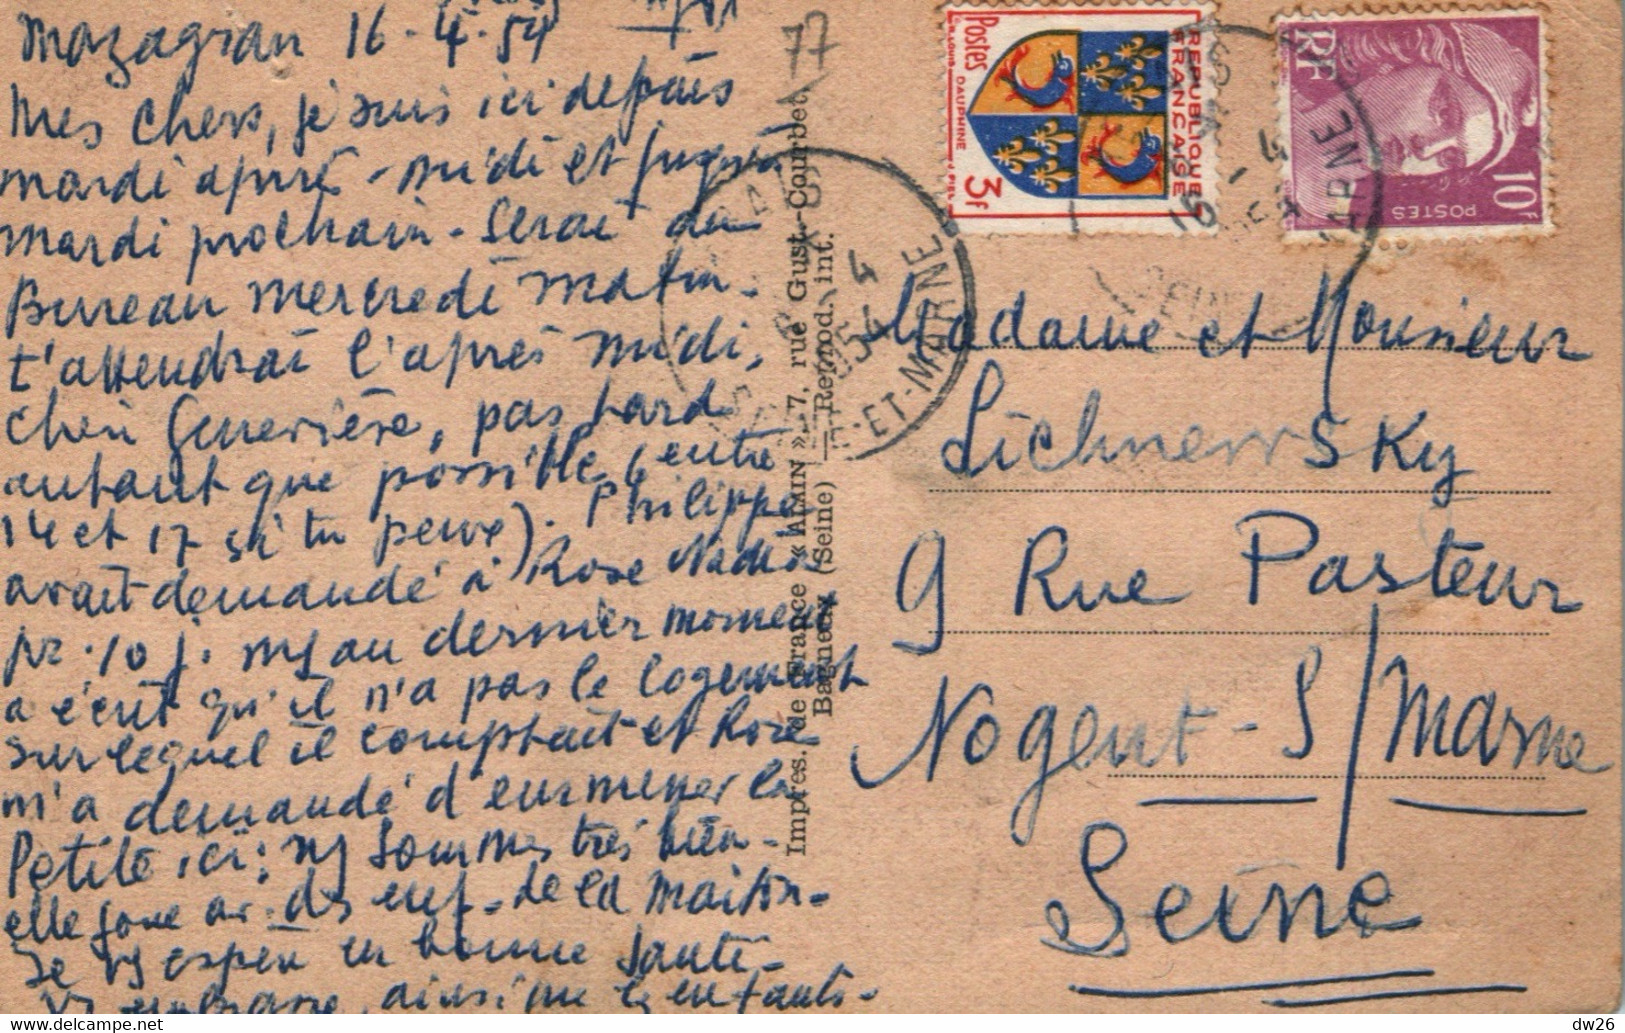 Mazagran 16-4-54
Mes chers, je suis ici depuis
mardi après-midi et jusqu'à
mardi prochain. Serai du
Bureau mercredi matin.
t'attendrai l'après midi,
chez Geneviève, pas tard
autant que possible (entre
14 et 17 si tu peux). Philippe
avait demandé à Rose
pr. 10 j. mais au dernier moment
a écrit qu'il n'a pas le logement
sur lequel il comptait et Rose
m'a demandé d'emmener la
Petite ici; ns sommes très bien-
elle joue av. des enf. de la maison.
Je vs espère en bonne santé-
Vs embrasse, ainsi que les enfants-
77
Impres. de France « ALMIN » - 7, rue Gust.-Courbet,
Bagneux (Seine) — Reprod. int.
Postes
REPUBLIQUE
FRANÇAISE
DAUPHINE
3f
RF
10f
POSTES
4
54
SEINE-ET-MARNE
Madame et Monsieur
Lichnewsky
9 Rue Pasteur
Nogent-S/Marne
Seine
dw26